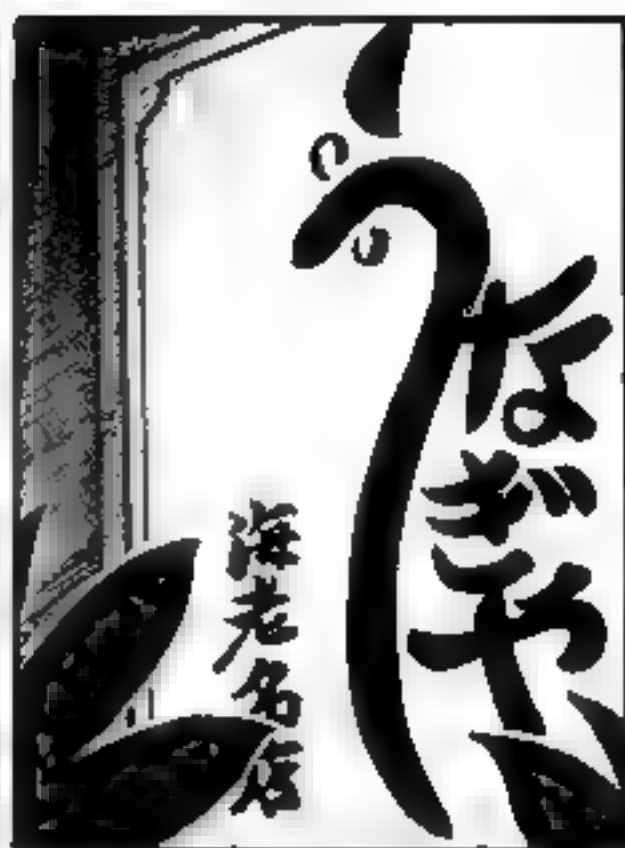 うなぎや
海老名店